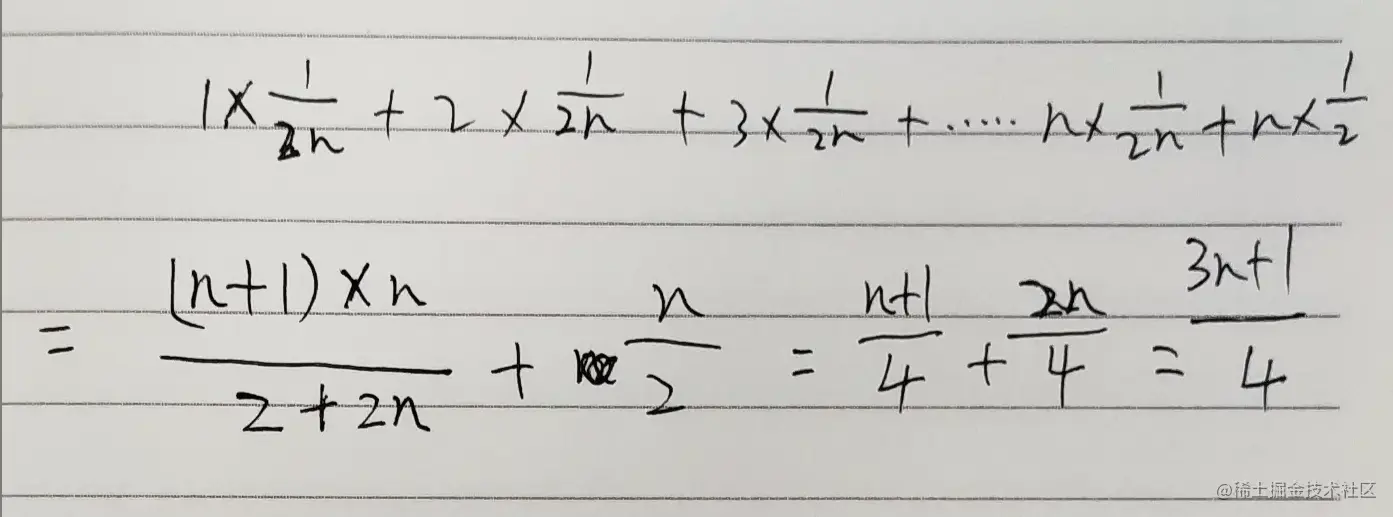 1 × 1/2n + 2 × 1/2n + 3 × 1/2n + ...... n × 1/2n + n × 1/2
= (n+1) × n / 2+2n + n/2 = n+1/4 + 2n/4 = 3n+1/4
@稀土掘金技术社区